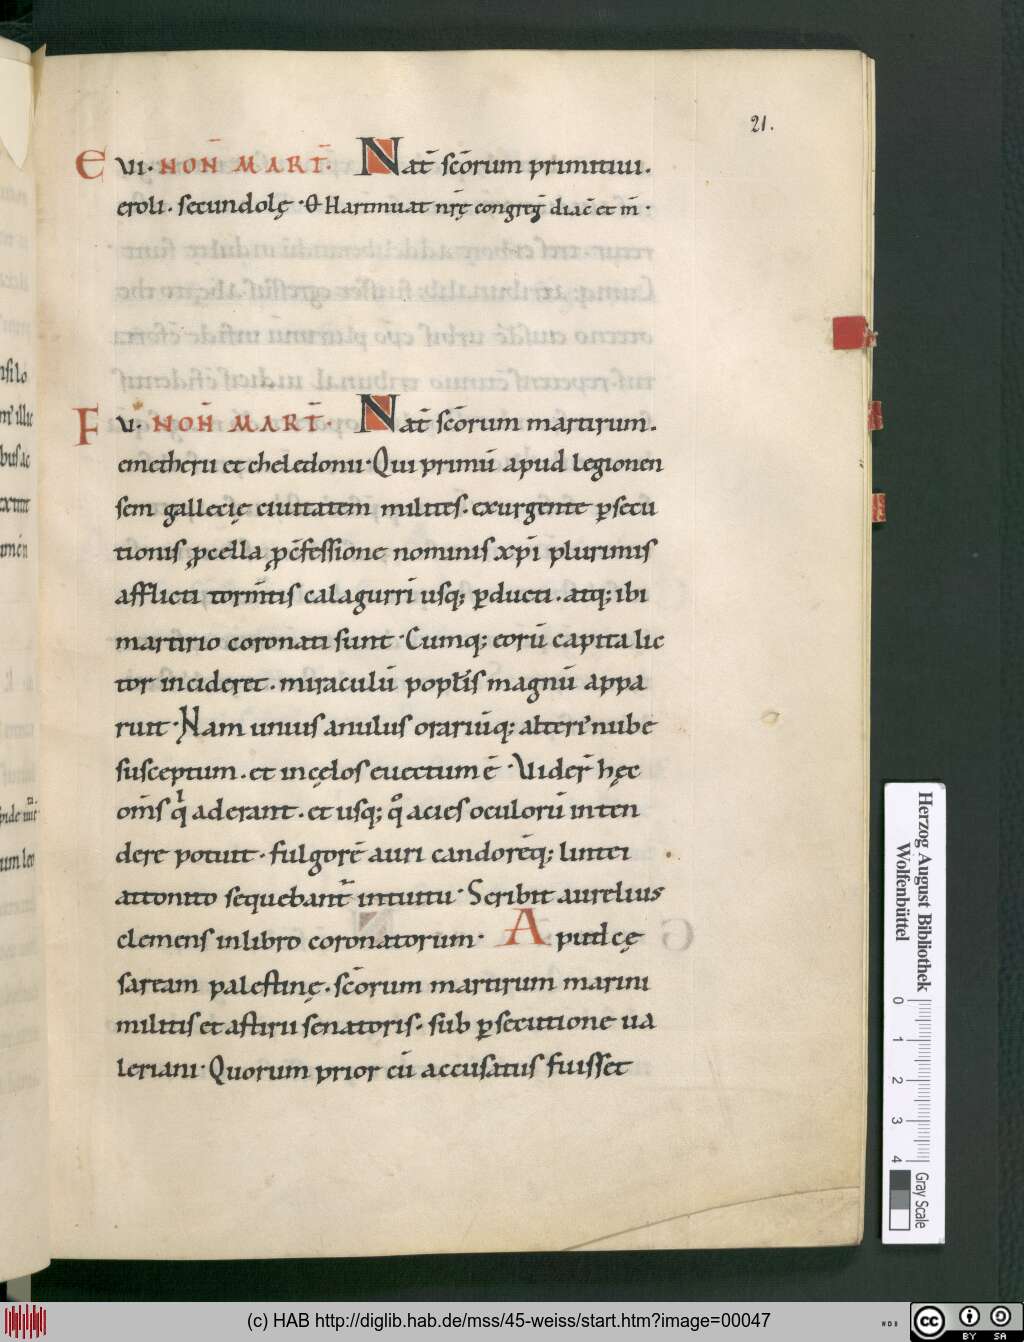 21.
E VI· NOÑ MART̄. Nat̄ sc̄orum primitiui.
eroli. secundolę · Θ Hartmuat nr̄ę congreḡ diac̄ et m̄ ·
F V· NOÑ MART̄· Nat̄ sc̄orum martirum.
emetherii et cheledonii· Qui primū apud legionen
sem gallecię ciuitatem milites. exurgente ꝑsecu
tionis ꝓcella ꝓ c̄fessione nominis xp̄i plurimis
afflicti torm̄tis calagurri usq; ꝑducti. atq; ibi
martirio coronati sunt· Cumq; eorū capita lic
tor incideret. miraculū popl̄is magnū appa
ruit· Nam unius anulus orariūq; alteri' nube
susceptum. et incęlos euectum ē· Uider̄ hęc
om̄s qͥ aderant. et usq; qͦ acies oculorū inten
dere potuit. fulgorē auri candorēq; lintei
attonito sequebant̄ intuitu· Scribit aurelius
clemens in libro coronatorum· Apud cę
saream palestinę. sc̄orum martirum marini
militis et astirii senatoris. sub ꝑsecutione ua
leriani· Quorum prior cū accusatus fuisset
Herzog August Bibliothek
Wolfenbüttel
0 1 2 3 4
Gray Scale
(c) HAB http://diglib.hab.de/mss/45-weiss/start.htm?image=00047
cc BY SA